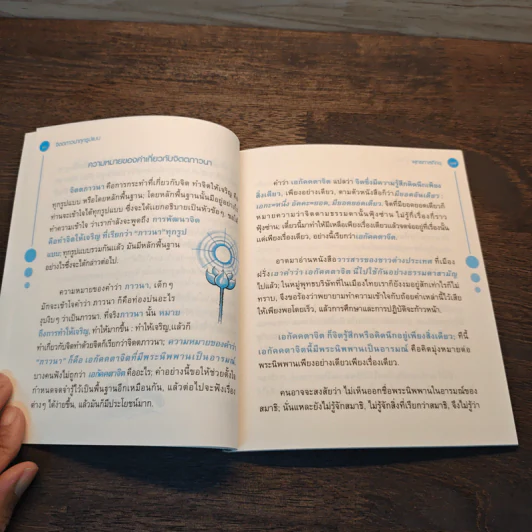 จิตตภาวนาทุกรูปแบบ
ความหมายของคำเกี่ยวกับจิตตภาวนา
จิตตภาวนา คือการกระทำที่เกี่ยวกับจิต ทำจิตให้เจริญ
ทุกรูปแบบ หรือโดยหลักพื้นฐาน; โดยหลักพื้นฐานนั้นมีอยู่อย่าง
ท่านจะเข้าใจได้ทุกรูปแบบ ซึ่งจะได้แยกอธิบายเป็นหัวข้อๆ
ทำความเข้าใจ ว่าเรากำลังจะพูดถึง การพัฒนาจิต
คือทำจิตให้เจริญ ที่เรียกว่า "ภาวนา" ทุกรูป
แบบ; ทุกรูปแบบรวมกันแล้ว มันมีหลักพื้นฐาน
อย่างไรซึ่งจะได้กล่าวต่อไป.
ความหมายของคำว่า ภาวนา, เด็กๆ
มักจะเข้าใจคำว่า ภาวนา ก็คือท่องบ่นอะไร
งุบงิบๆ ว่าเป็นภาวนา. ที่จริงภาวนา นั้น หมาย
ถึงการทำให้เจริญ, ทำให้มากขึ้น : ทำให้เจริญ,แล้วก็
ทำเกี่ยวกับจิตทำด้วยจิตก็เรียกว่าจิตตภาวนา; ความหมายของคำว่า
"ภาวนา" ก็คือ เอกัคคตาจิตที่มีพระนิพพานเป็นอารมณ์
บางคนฟังไม่ถูกว่า เอกัคคตาจิต คืออะไร; คำอย่างนี้ขอให้ช่วยตั้งใจ
กำหนดจดจำรู้ไว้เป็นพื้นฐานอีกเหมือนกัน, แล้วต่อไปจะฟังเรื่อง
ต่างๆ ได้ง่ายขึ้น, แล้วมันก็มีประโยชน์มาก.
พุทธทาสภิกขุ
คำว่า เอกัคคตาจิต แปลว่า จิตซึ่งมีความรู้สึกดิ่งมีเพียง
สิ่งเดียว, เพียงอย่างเดียว, ตามตัวหนังสือก็ว่ามียอดอันเดียว;
เอกะ=หนึ่ง อัคคะ=ยอด, มียอดยอดเดียว. จิตที่มียอดยอดเดียวก็
หมายความว่าจิตตามธรรมดานั้นฟุ้งซ่าน ไม่รู้กี่เรื่องกี่ราว
ฟุ้งซ่าน; เดี๋ยวนี้มาทำให้มีเหลือเพียงเรื่องเดียวแล้วหดจ่ออยู่ที่เรื่องนั้น
แต่เพียงเรื่องเดียว, อย่างนี้เรียกว่าเอกัคคตาจิต.
อาตมาอ่านหนังสือวารสารของชาวต่างประเทศ ที่เมือง
ฝรั่งเขาคำว่า เอกัคคตาจิต นี้ไปใช้กันอย่างธรรมดาสามัญ
ไปแล้ว; ในหมู่พุทธบริษัทที่ในเมืองไทยเรากียังงมอยู่สักเท่าไรก็ไม่
ทราบ, จึงขอร้องว่าพยายามทำความเข้าใจกับถ้อยคำเหล่านี้ไว้เสีย
ให้เพียงพอโดยเร็ว, แล้วการศึกษาและการปฏิบัติจะก้าวหน้า.
เอกัคคตาจิต ก็จิตรู้สึกหรือคิดนึกอยู่เพียงสิ่งเดียว; ทีนี้
เอกัคคตาจิตนี้มีพระนิพพานเป็นอารมณ์ คือคิดมุ่งหมายต่อ
พระนิพพานเพียงอย่างเดียวเพียงเรื่องเดียว.
คนอาจจะสงสัยว่า ไม่เห็นออกชื่อพระนิพพานในอารมณ์ของ
สมาธิ; นั่นแหละยังไม่รู้จักสมาธิ, ไม่รู้จักสิ่งที่เรียกว่าสมาธิ, จึงไม่รู้ว่า